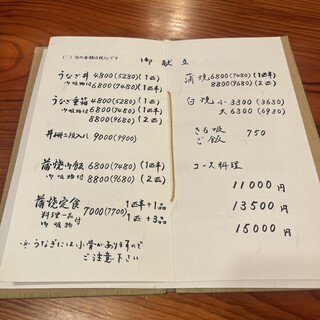 ( )内の金額は税込です
御献立
うなぎ丼 4800(5280) (1匹)
御吸物付 6800(7480) (1匹半)
うなぎ重箱 4800(5280) (1匹)
御吸物付 6800(7480) (1匹半)
8800(9680) (2匹)
丼 二段入り 9000(9900)
蒲焼御飯 6800(7480) (1匹半)
御吸物付 8800(9680) (2匹)
蒲焼定食 7000(7700) 1匹半+1品
料理一品 1匹+3品
御吸物
※うなぎには小骨がありますので
ご注意下さい
蒲焼 6800(7480) (1匹半)
8800(9680) (2匹)
白焼 小 3300(3630)
大 6300(6930)
きも吸 750
ご飯
コース料理
11000円
13500円
15000円